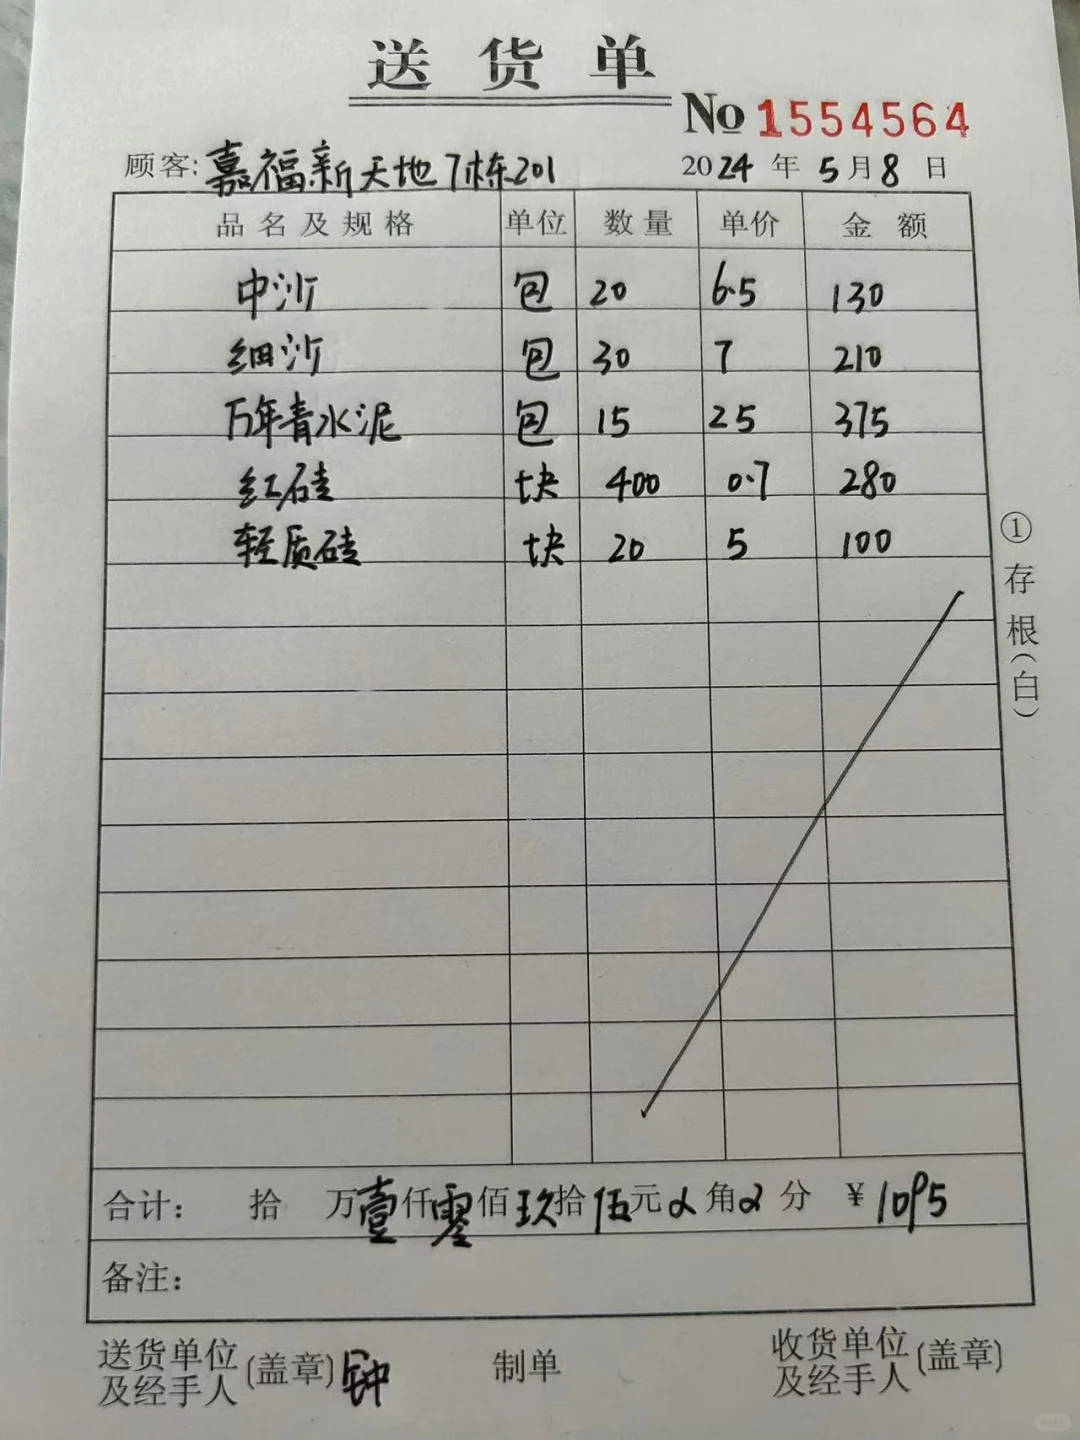 送货单
No 1554564
顾客: 嘉福新天地7栋201 2024年5月8日
品名及规格 单位 数量 单价 金额
中沙 包 20 6.5 130
细沙 包 30 7 210
万年青水泥 包 15 25 375
红砖 块 400 0.7 280
轻质砖 块 20 5 100
①存根(白)
合计: 拾 万壹仟零佰玖拾伍元 角 分 ¥1095
备注:
送货单位及经手人(盖章)钟 制单 收货单位及经手人(盖章)